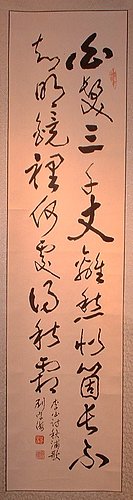 白髮三千丈離愁似箇長不
知明鏡裡何處得秋霜
李白詩秋浦歌
劉